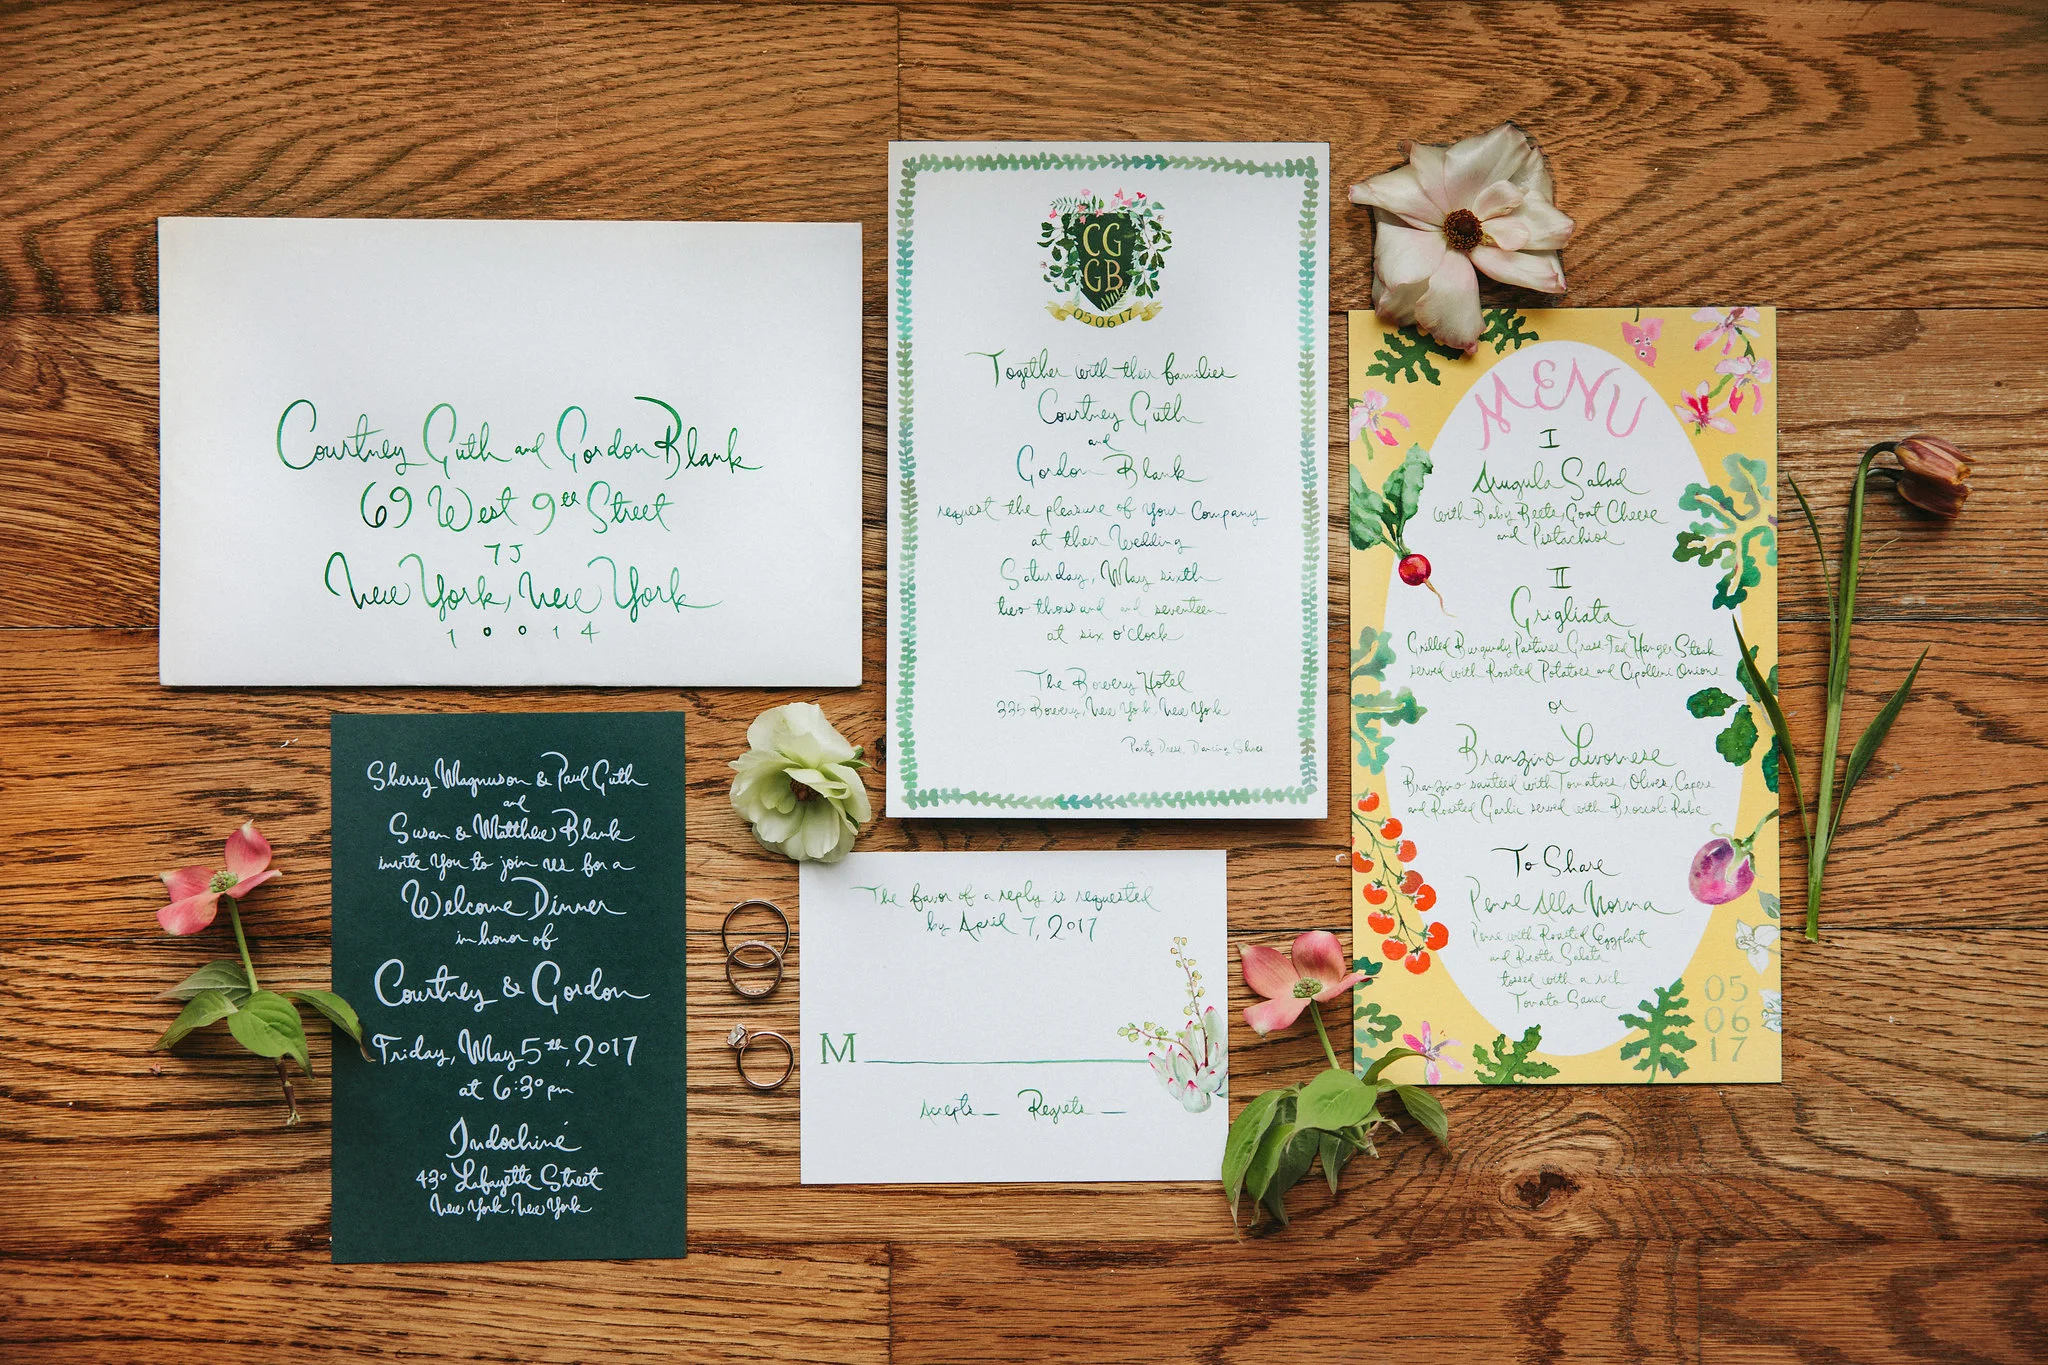 Courtney Guth and Gordon Blank
69 West 9th Street
7J
New York, New York
10014
CG
GB
050617
Together with their families
Courtney Guth
and
Gordon Blank
request the pleasure of your Company
at their Wedding
Saturday, May sixth
two thousand and seventeen
at six o'clock
The Bowery Hotel
335 Bowery, New York, New York
Party Dress, Dancing Shoes
MENU
I
Arugula Salad
with Baby Beets, Goat Cheese
and Pistachios
II
Grigliata
Grilled Burgundy Pastures Grass-Fed Hanger Steak
served with Roasted Potatoes and Cipollini Onions
or
Branzino Livornese
Branzino sautéed with Tomatoes, Olives, Capers
and Roasted Garlic served with Broccoli Rabe
To Share
Penne Alla Norma
Penne with Roasted Eggplant
and Ricotta Salata
tossed with a rich
Tomato Sauce
05
06
17
Sherry Magnuson & Paul Guth
and
Susan & Matthew Blank
invite you to join us for a
Welcome Dinner
in honor of
Courtney & Gordon
Friday, May 5th, 2017
at 6:30 pm
Indochine
430 Lafayette Street
New York, New York
The favor of a reply is requested
by April 7, 2017
M
Accepts Regrets